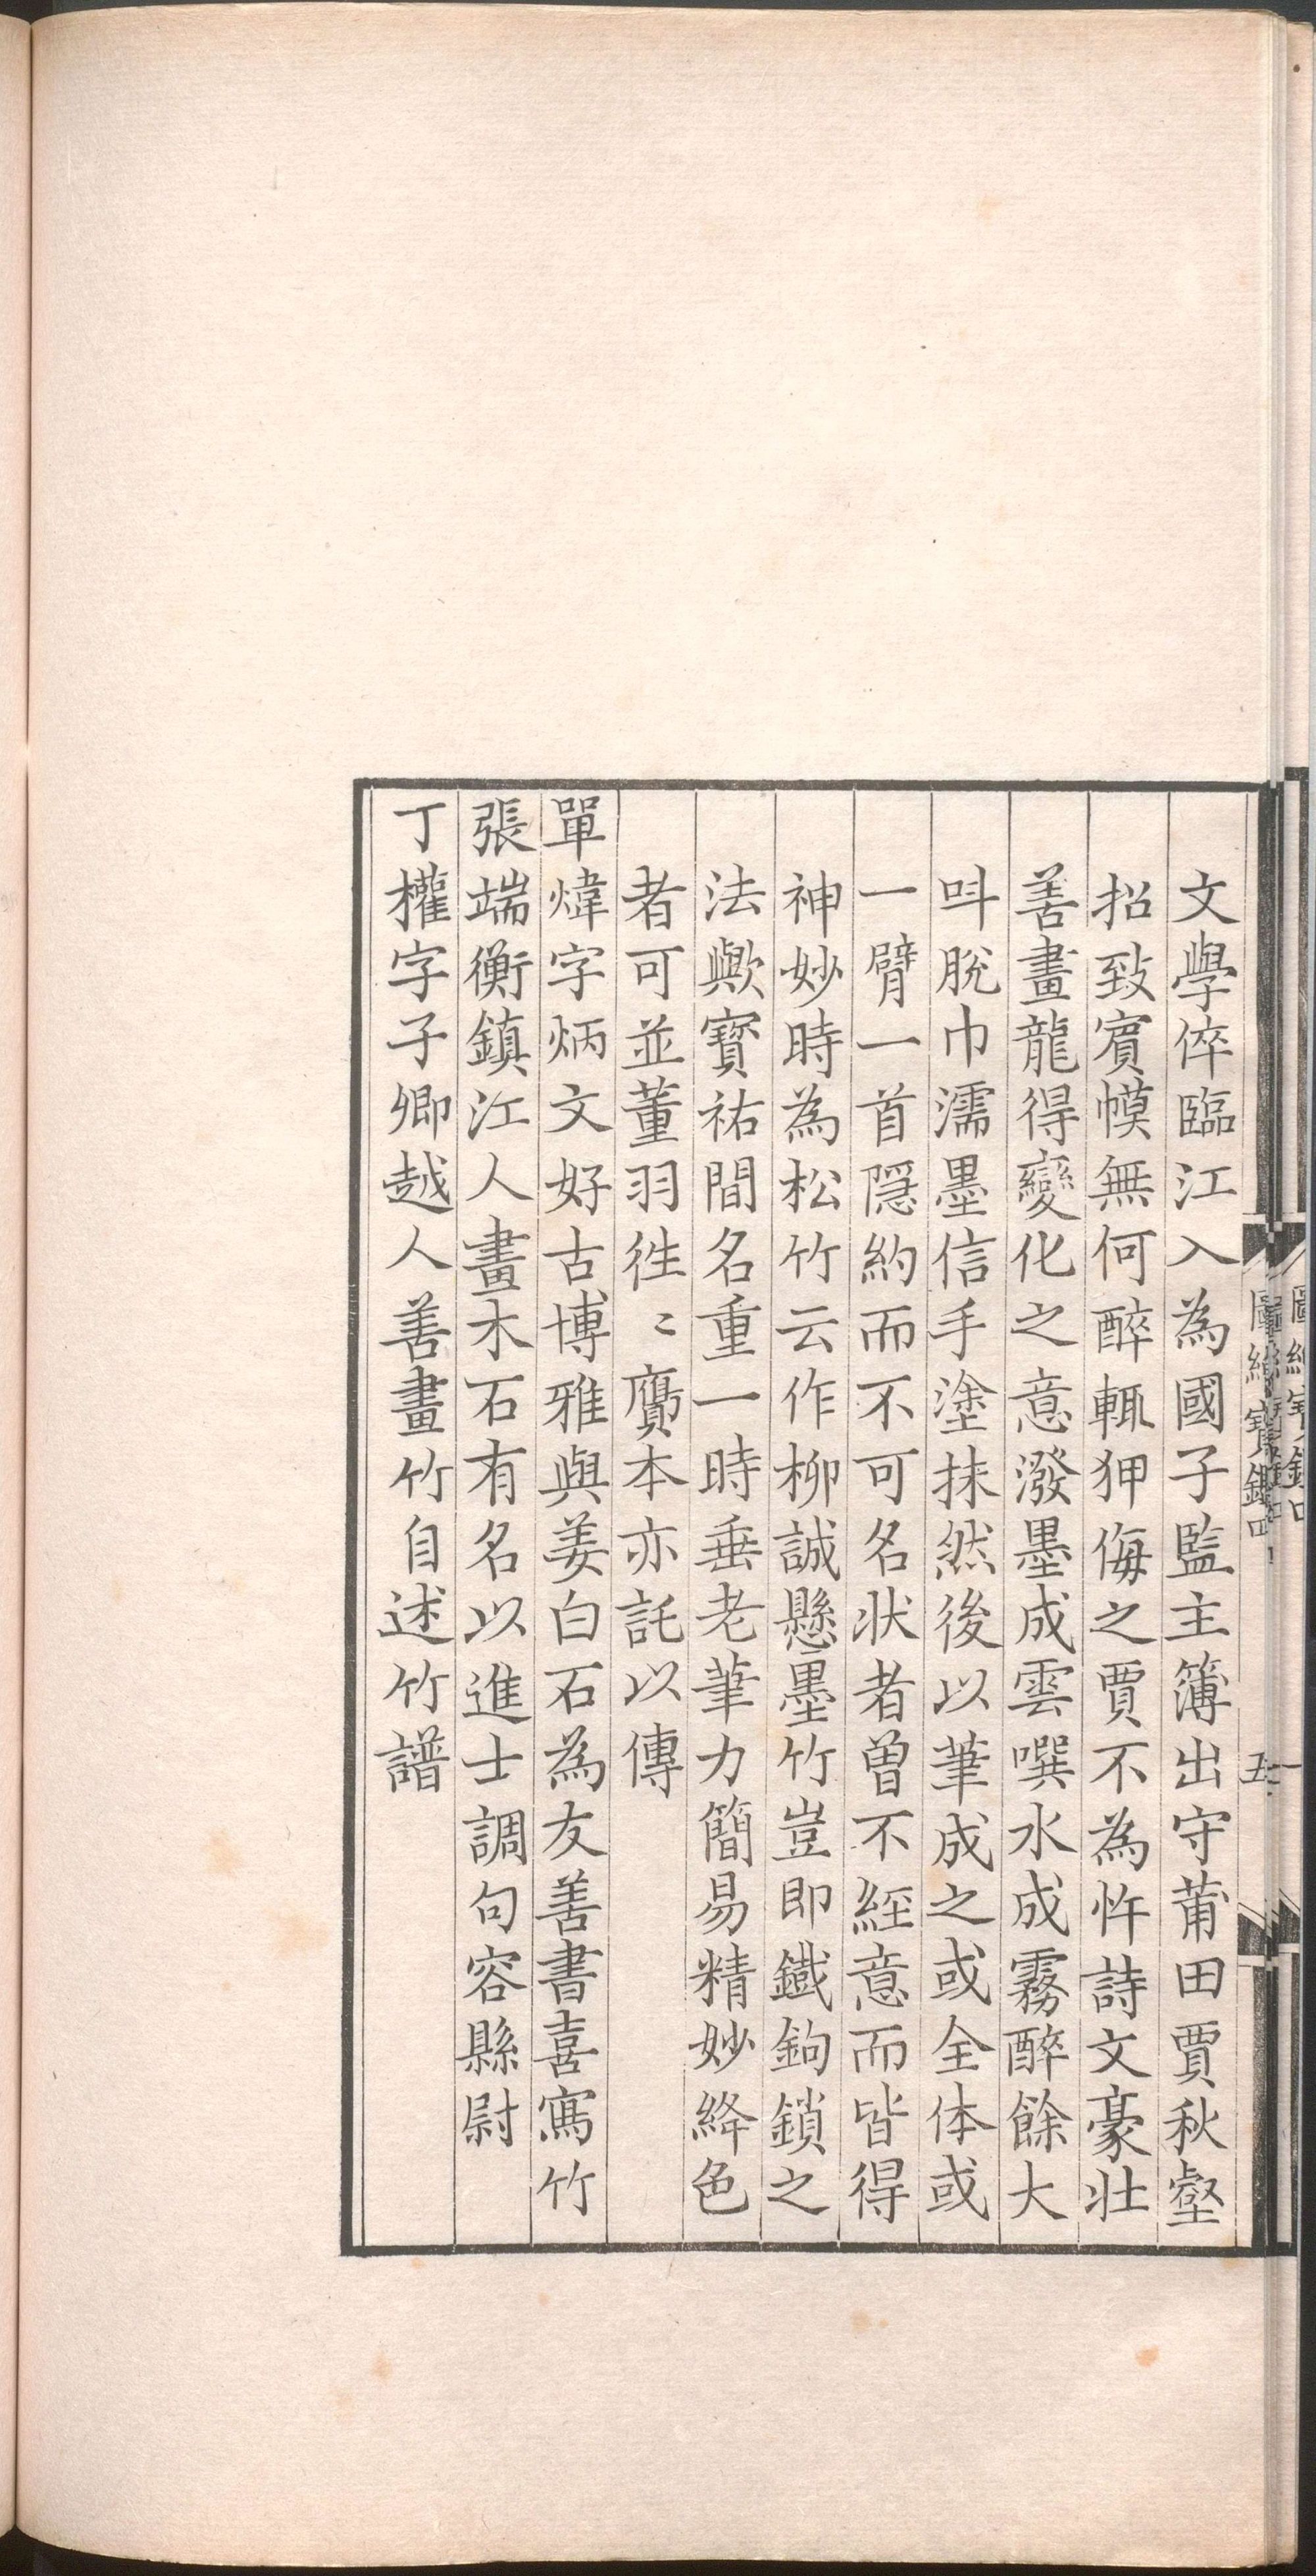 文學倅臨江入為國子監主簿出守莆田賈秋壑
招致賓幙無何醉輒狎侮之賈不為忤詩文豪壯
善畫龍得變化之意潑墨成雲噀水成霧醉餘大
呌脫巾濡墨信手塗抹然後以筆成之或全体或
一臂一首隱約而不可名狀者曾不經意而皆得
神妙時為松竹云作柳誠懸墨竹豈即鐵鉤鎖之
法歟寶祐間名重一時垂老筆力簡易精妙絳色
者可並董羽徃〻贗本亦託以傳
單煒字炳文好古博雅與姜白石為友善書喜寫竹
張端衡鎮江人畫木石有名以進士調句容縣尉
丁權字子卿越人善畫竹自述竹譜
圖繪寶鑑四
五